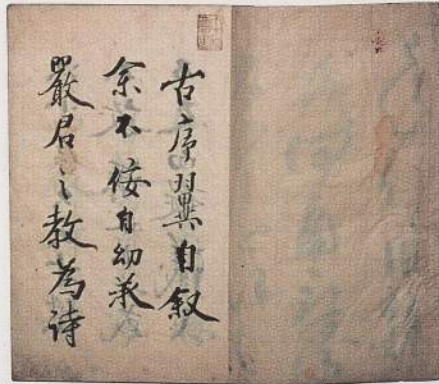 古序翼自叙
余不佞自幼承
嚴君之教為詩